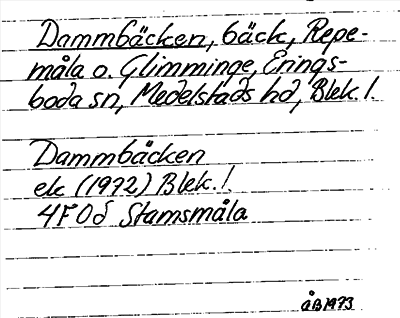 Dammbäcken, bäck, Repe-
måla o. Glimminge, Erings-
boda sn, Medelstads hd, Blek. l.
Dammbäcken
ek (1972) Blek. l.
4F0d Stamsmåla
ÅB1973